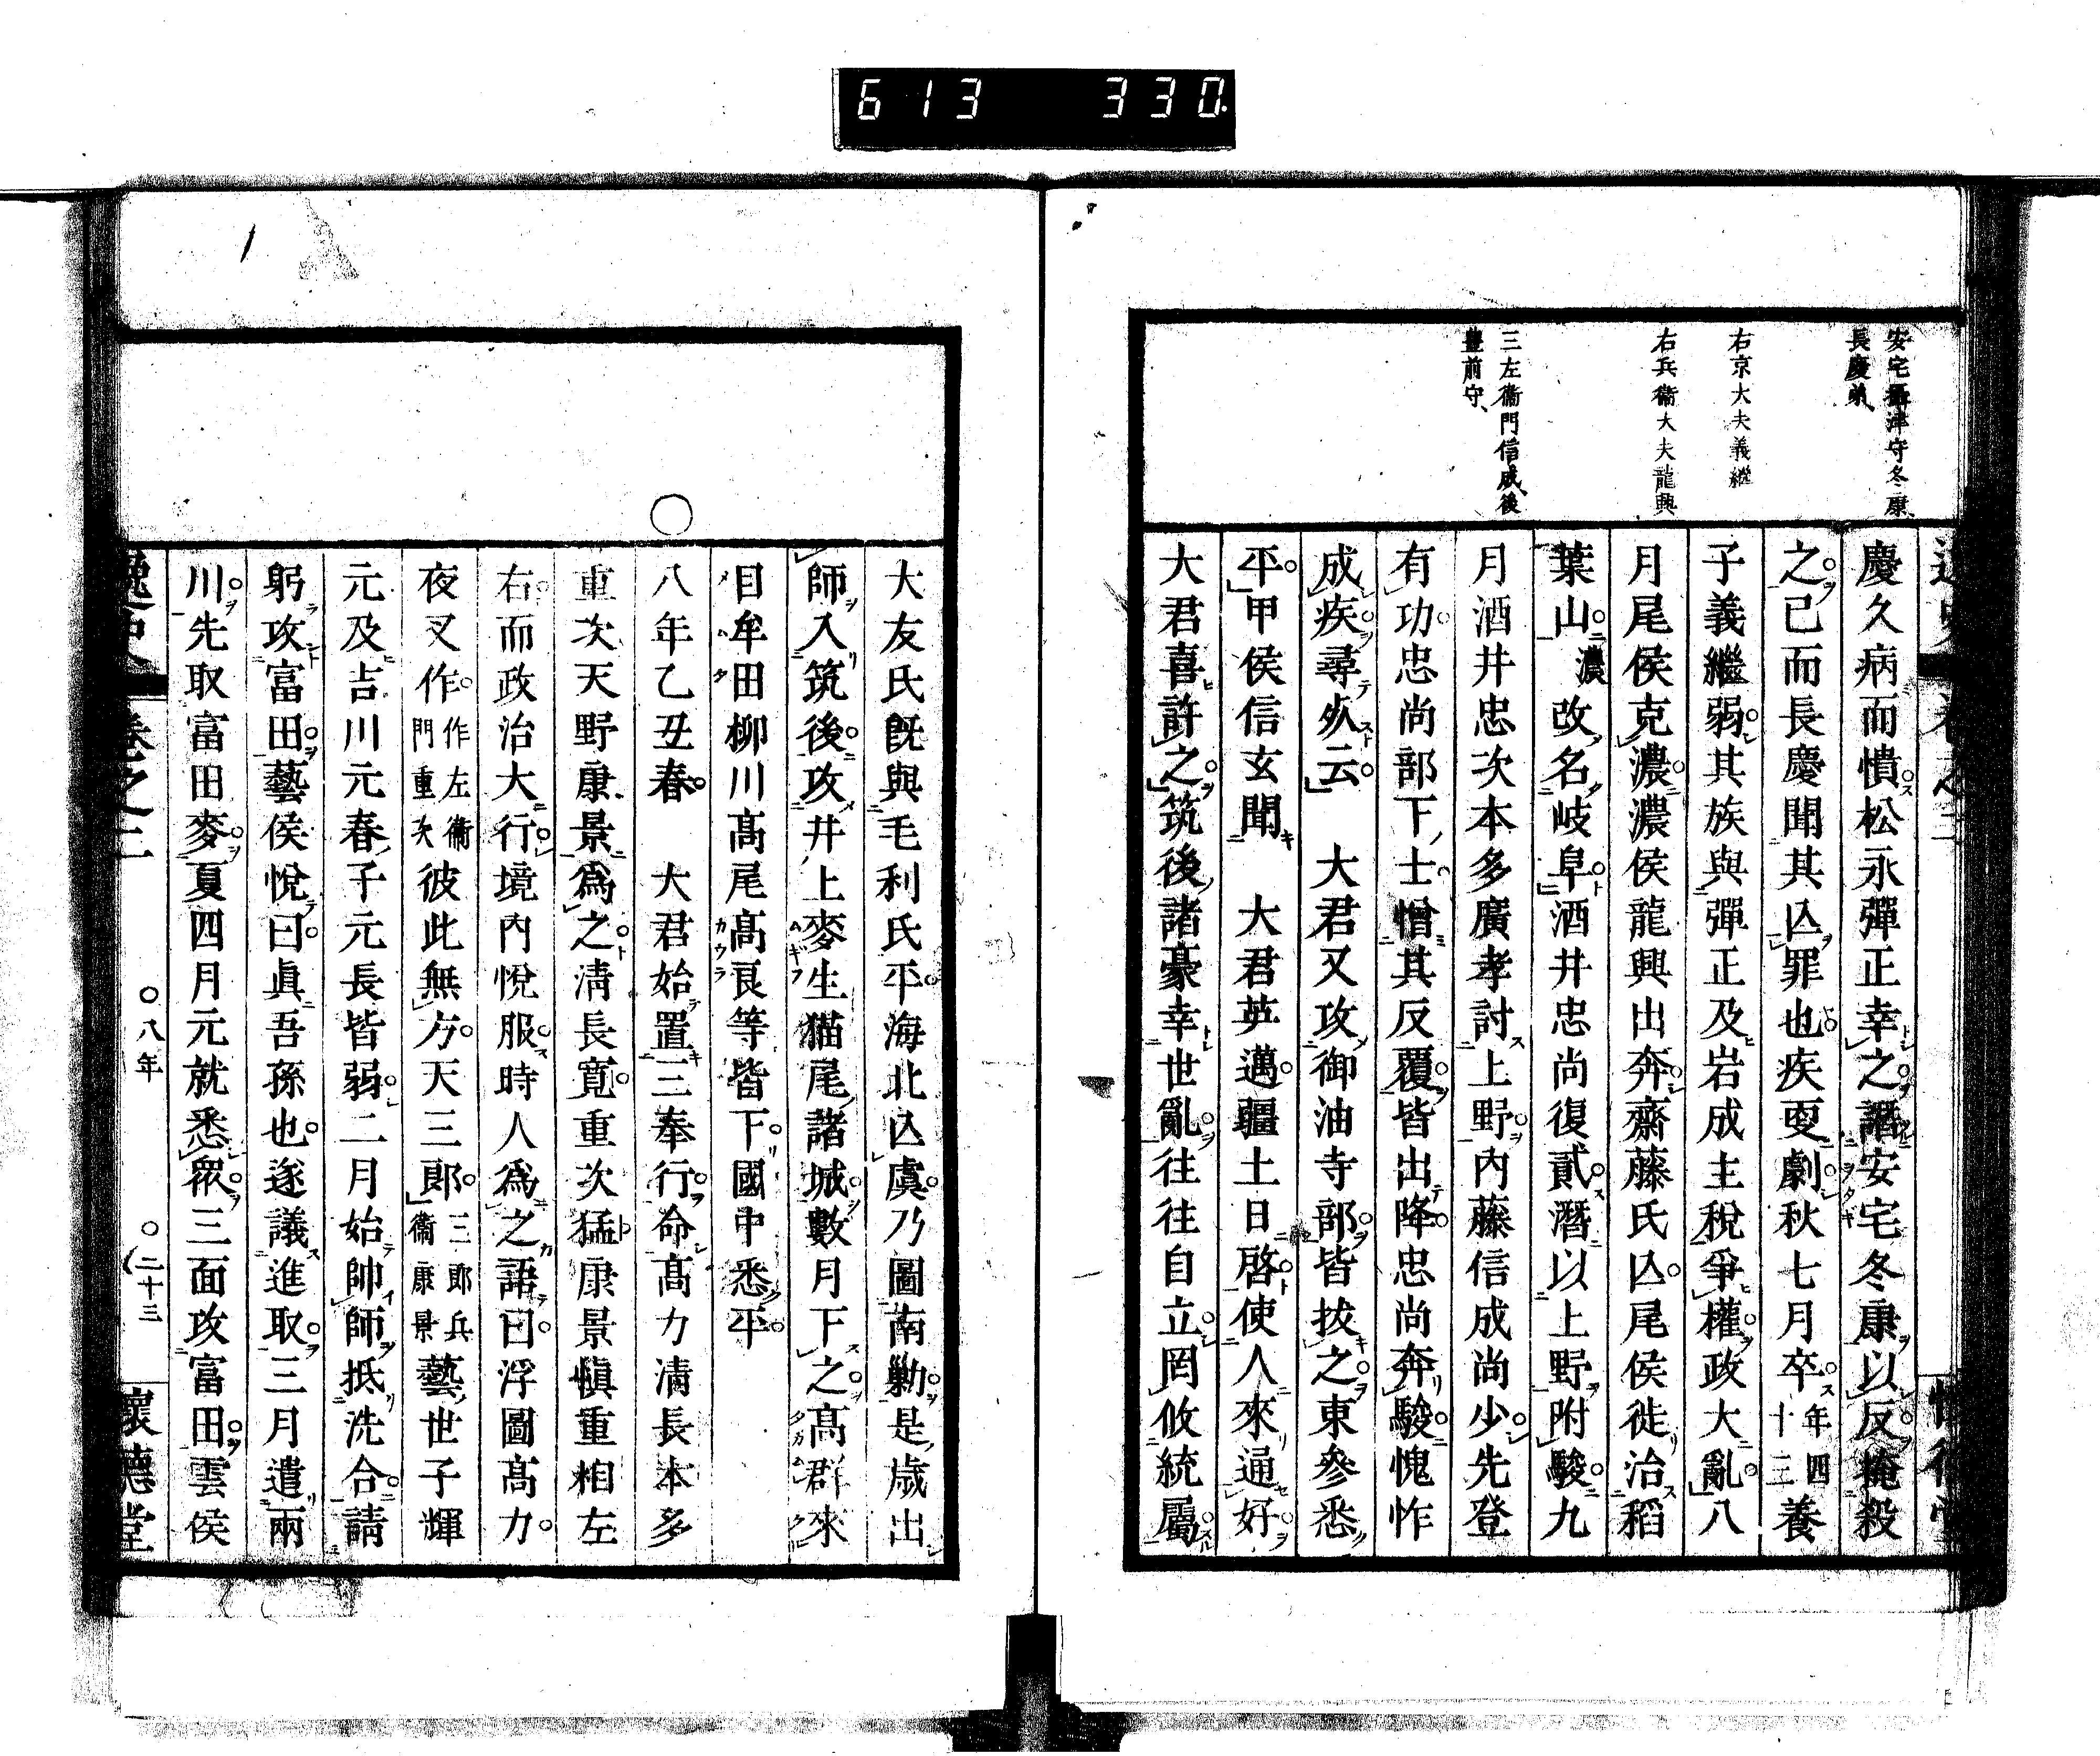 613 330
安宅攝津守冬康、
長慶弟、
右京大夫義繼
右兵衞大夫龍興
三左衞門信成、後
豊前守、
慶久病而憒松永彈正幸之譖安宅冬康以反掩殺
之已而長慶聞其亾罪也疾更劇秋七月卒年四十三養
子義繼弱其族與彈正及岩成主稅爭權政大亂八
月尾侯克濃濃侯龍興出奔齋藤氏亾尾侯徙治稻
葉山濃改名岐阜酒井忠尚復貳潛以上野附駿九
月酒井忠次本多廣孝討上野內藤信成尚少先登
有功忠尚部下士憎其反覆皆出降忠尚奔駿愧怍
成疾尋㱙云　大君又攻御油寺部皆拔之東參悉
平甲侯信玄聞　大君英邁疆土日啓使人來通好
大君喜許之筑後諸豪幸世亂往往自立罔攸統屬
大友氏旣與毛利氏平海北亾虞乃圖南勦是歲出
師入筑後攻井上麥生猫尾諸城數月下之髙群來
目牟田柳川髙尾髙良等皆下國中悉平
八年乙丑春　大君始置三奉行命髙力淸長本多
重次天野康景爲之淸長寬重次猛康景愼重相左
右而政治大行境內悅服時人爲之語曰浮圖髙力
夜叉作作左衞門重次彼此無方天三郎三郎兵衞康景藝世子輝
元及吉川元春子元長皆弱二月始帥師抵洗合請
躬攻富田藝侯悅曰眞吾孫也遂議進取三月遣兩
川先取富田麥夏四月元就悉衆三面攻富田雲侯
逸史　卷之二　八年　二十三　懷德堂